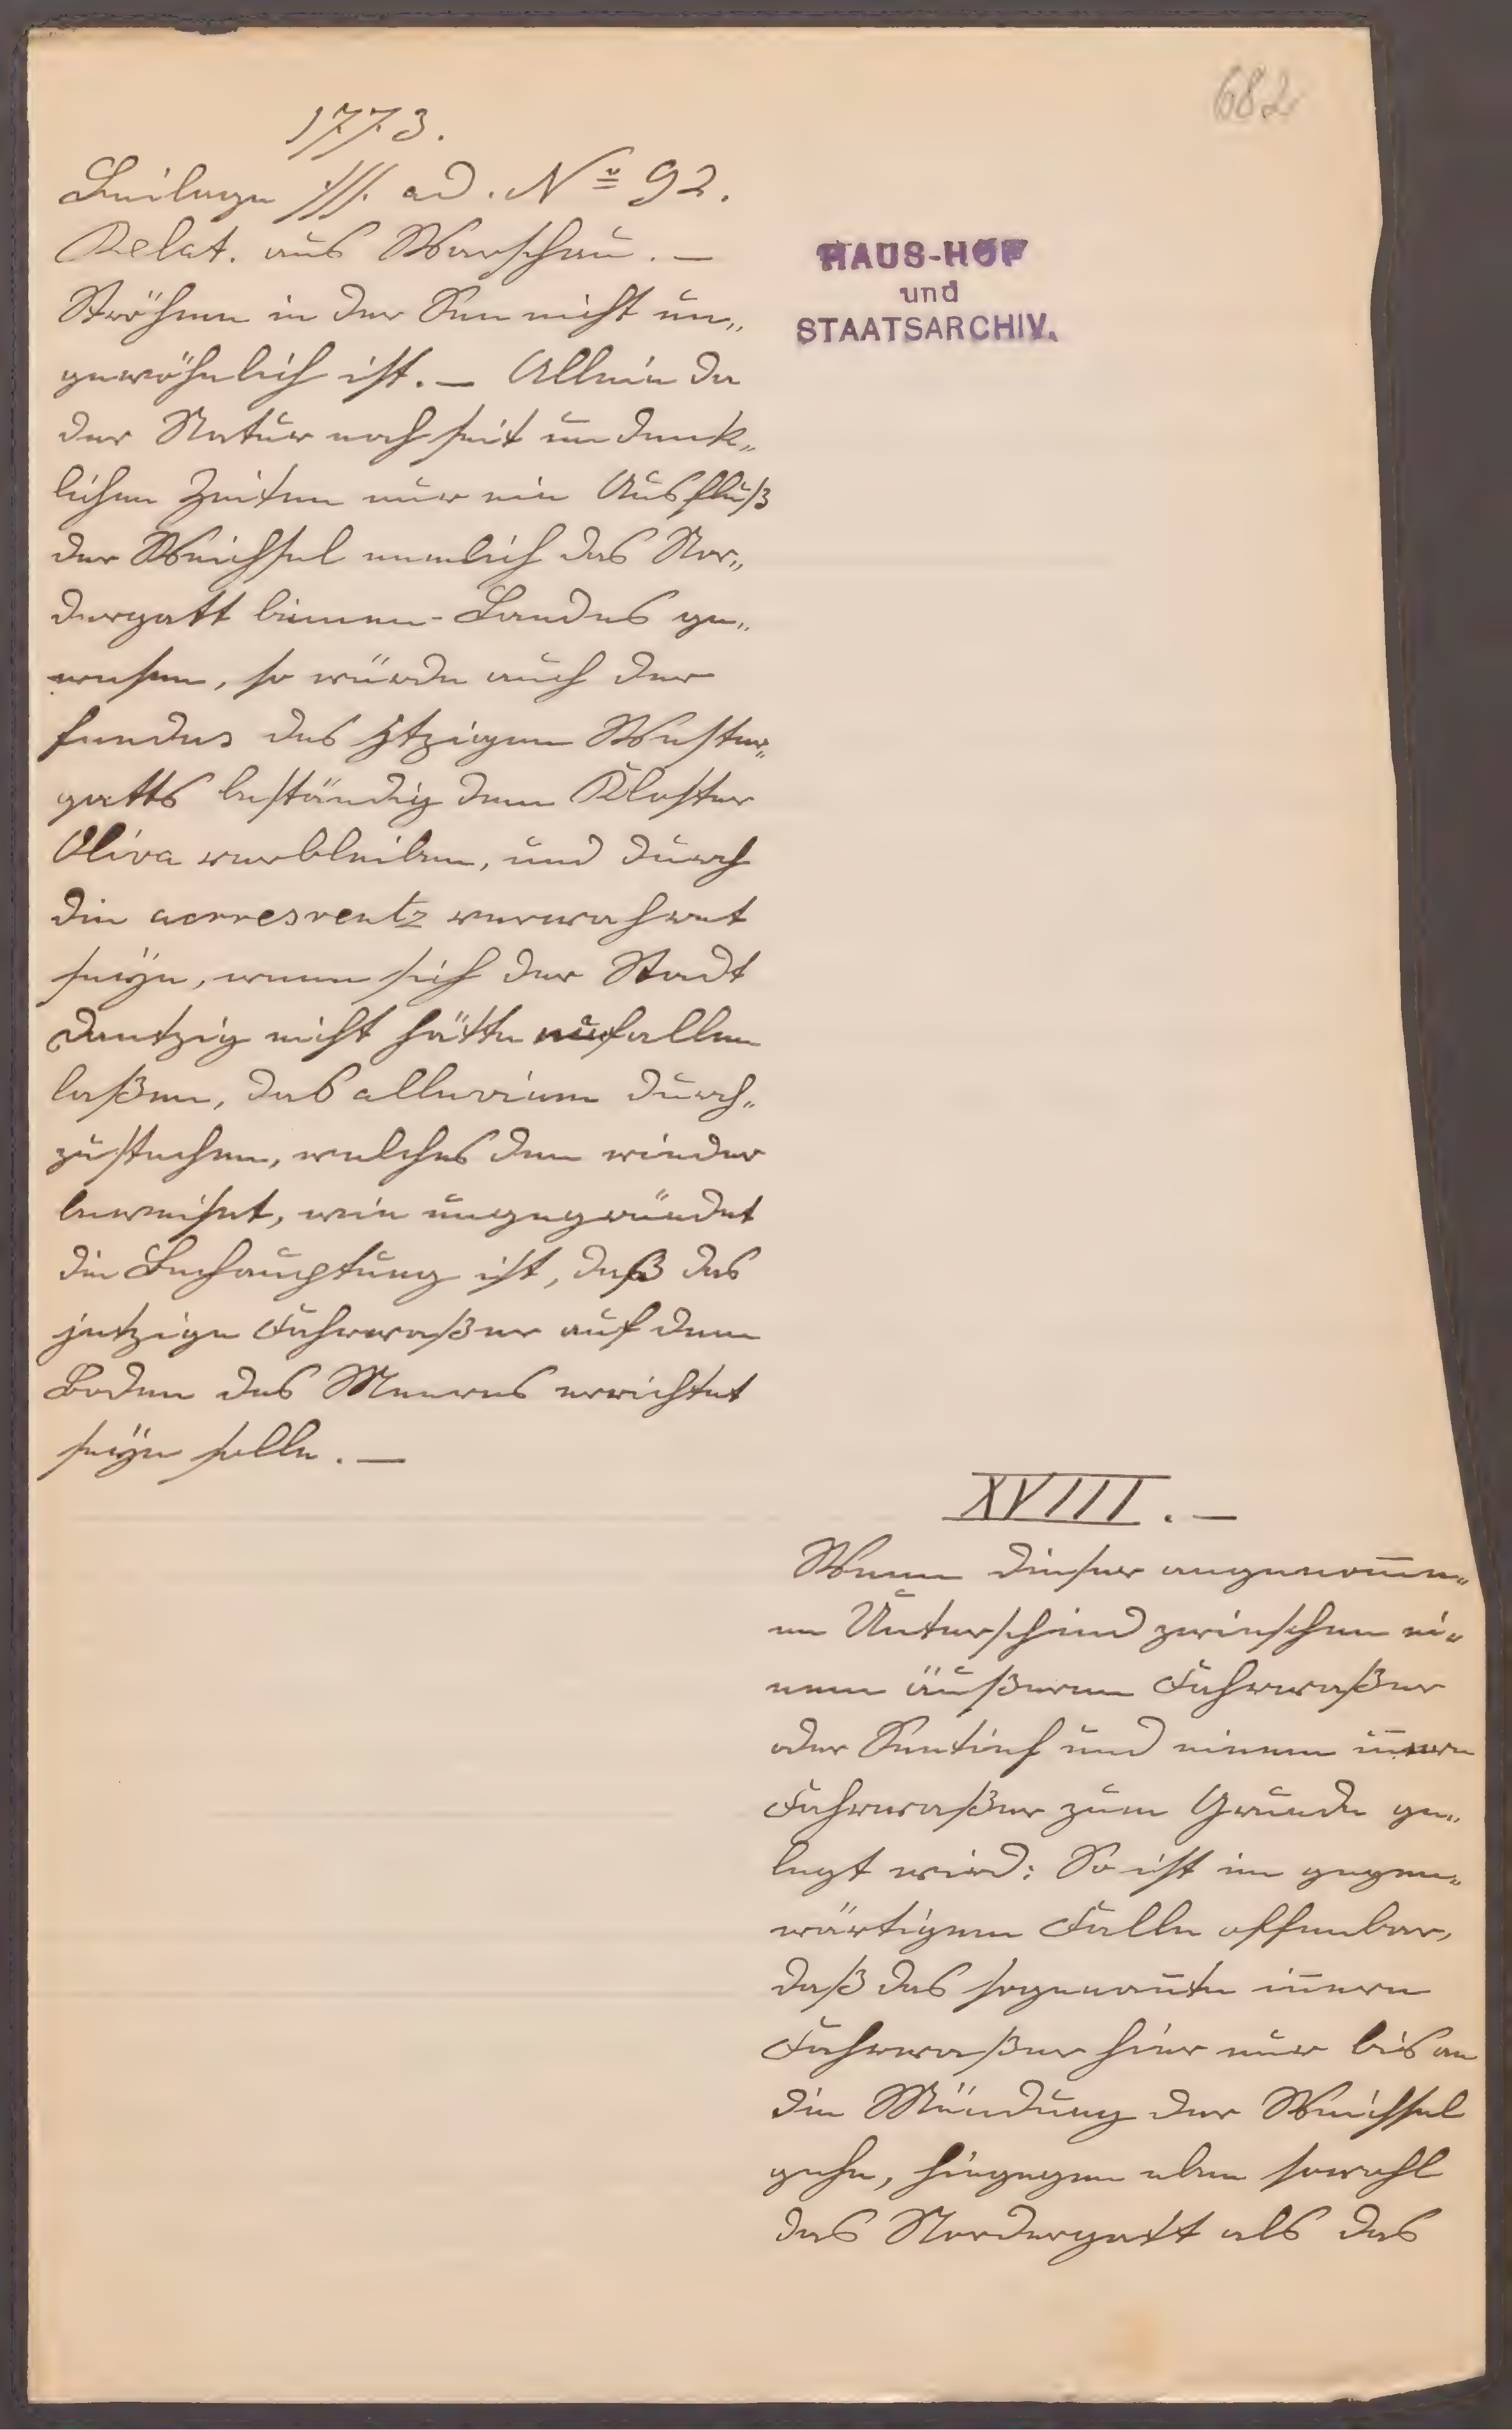 682
1773.
Beilage ./././. ad. No 92.
Relat. aus Warschau. —
HAUS-HOF
und
STAATSARCHIV.
Ströhme in der See nicht un„
gewöhnlich ist. — Allein da
der Natur nach seit undenk„
lichen Zeiten nur ein Ausfluß
der Weichsel nemlich das Nor„
dergatt binnen-Landes ge„
wesen, so würde auch der
fundus des jtzigen Wester„
gatts beständig dem Kloster
Oliva verbleiben, und durch
die verwahret
seÿn, wenn sich der Stadt
Dantzig nicht hätte fallen
laßen, das alluvium durch„
zustechen, welches den wieder
beweiset, wie ungegründet
die Behauptung ist, daß das
jetzige Fahrwaßer auf dem
Boden des Meeres errichtet
seÿn solle. —
XVIII. —
Wenn dieser angenom̅en„
en Unterschied zwieschen ei„
nem äußeren Fahrwaßer
oder Seetief und einem in̅ern
Fahrwaßer zum Grunde ge„
legt wird: So ist im gegen„
wärtigen Falle offenbar,
daß das sogenan̅te in̅ere
Fahrwaßer hier nur bis an
die Mündung der Weichsel
gehe, hingegen eben sowohl
das Nordergatt als das